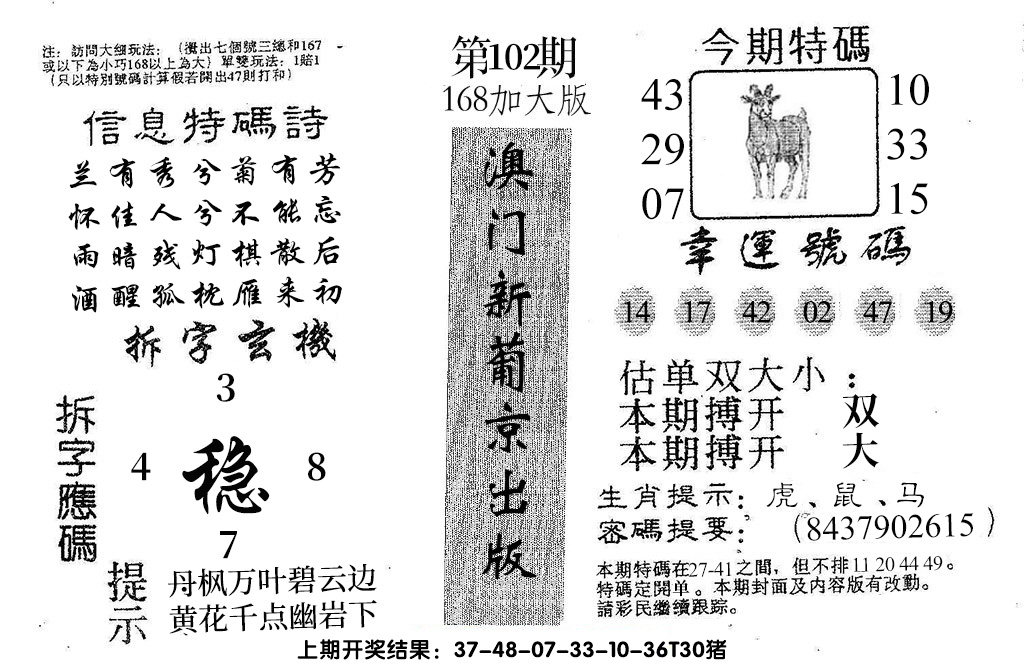 注：訪問大细玩法：（攪出七個號三總和167
或以下為小巧168以上為大）單雙玩法：1賠1
（只以特別號碼計算假若開出47則打和）
信息特碼詩
兰有秀兮菊有芳
怀佳人兮不能忘
雨暗残灯棋散后
酒醒孤枕雁来初
拆字玄機
3
拆字應碼
4 稳 8
7
提示
丹枫万叶碧云边
黄花千点幽岩下
第102期
168加大版
澳门新葡京出版
今期特碼
43 10
29 33
07 15
幸運號碼
14 17 42 02 47 19
估单双大小：
本期搏开 双
本期搏开 大
生肖提示：虎、鼠、马
密碼提要：（8437902615）
本期特碼在27-41之間，但不排11 20 44 49。
特碼定開单。本期封面及内容版有改動。
請彩民繼續跟踪。
上期开奖结果：37-48-07-33-10-36T30猪